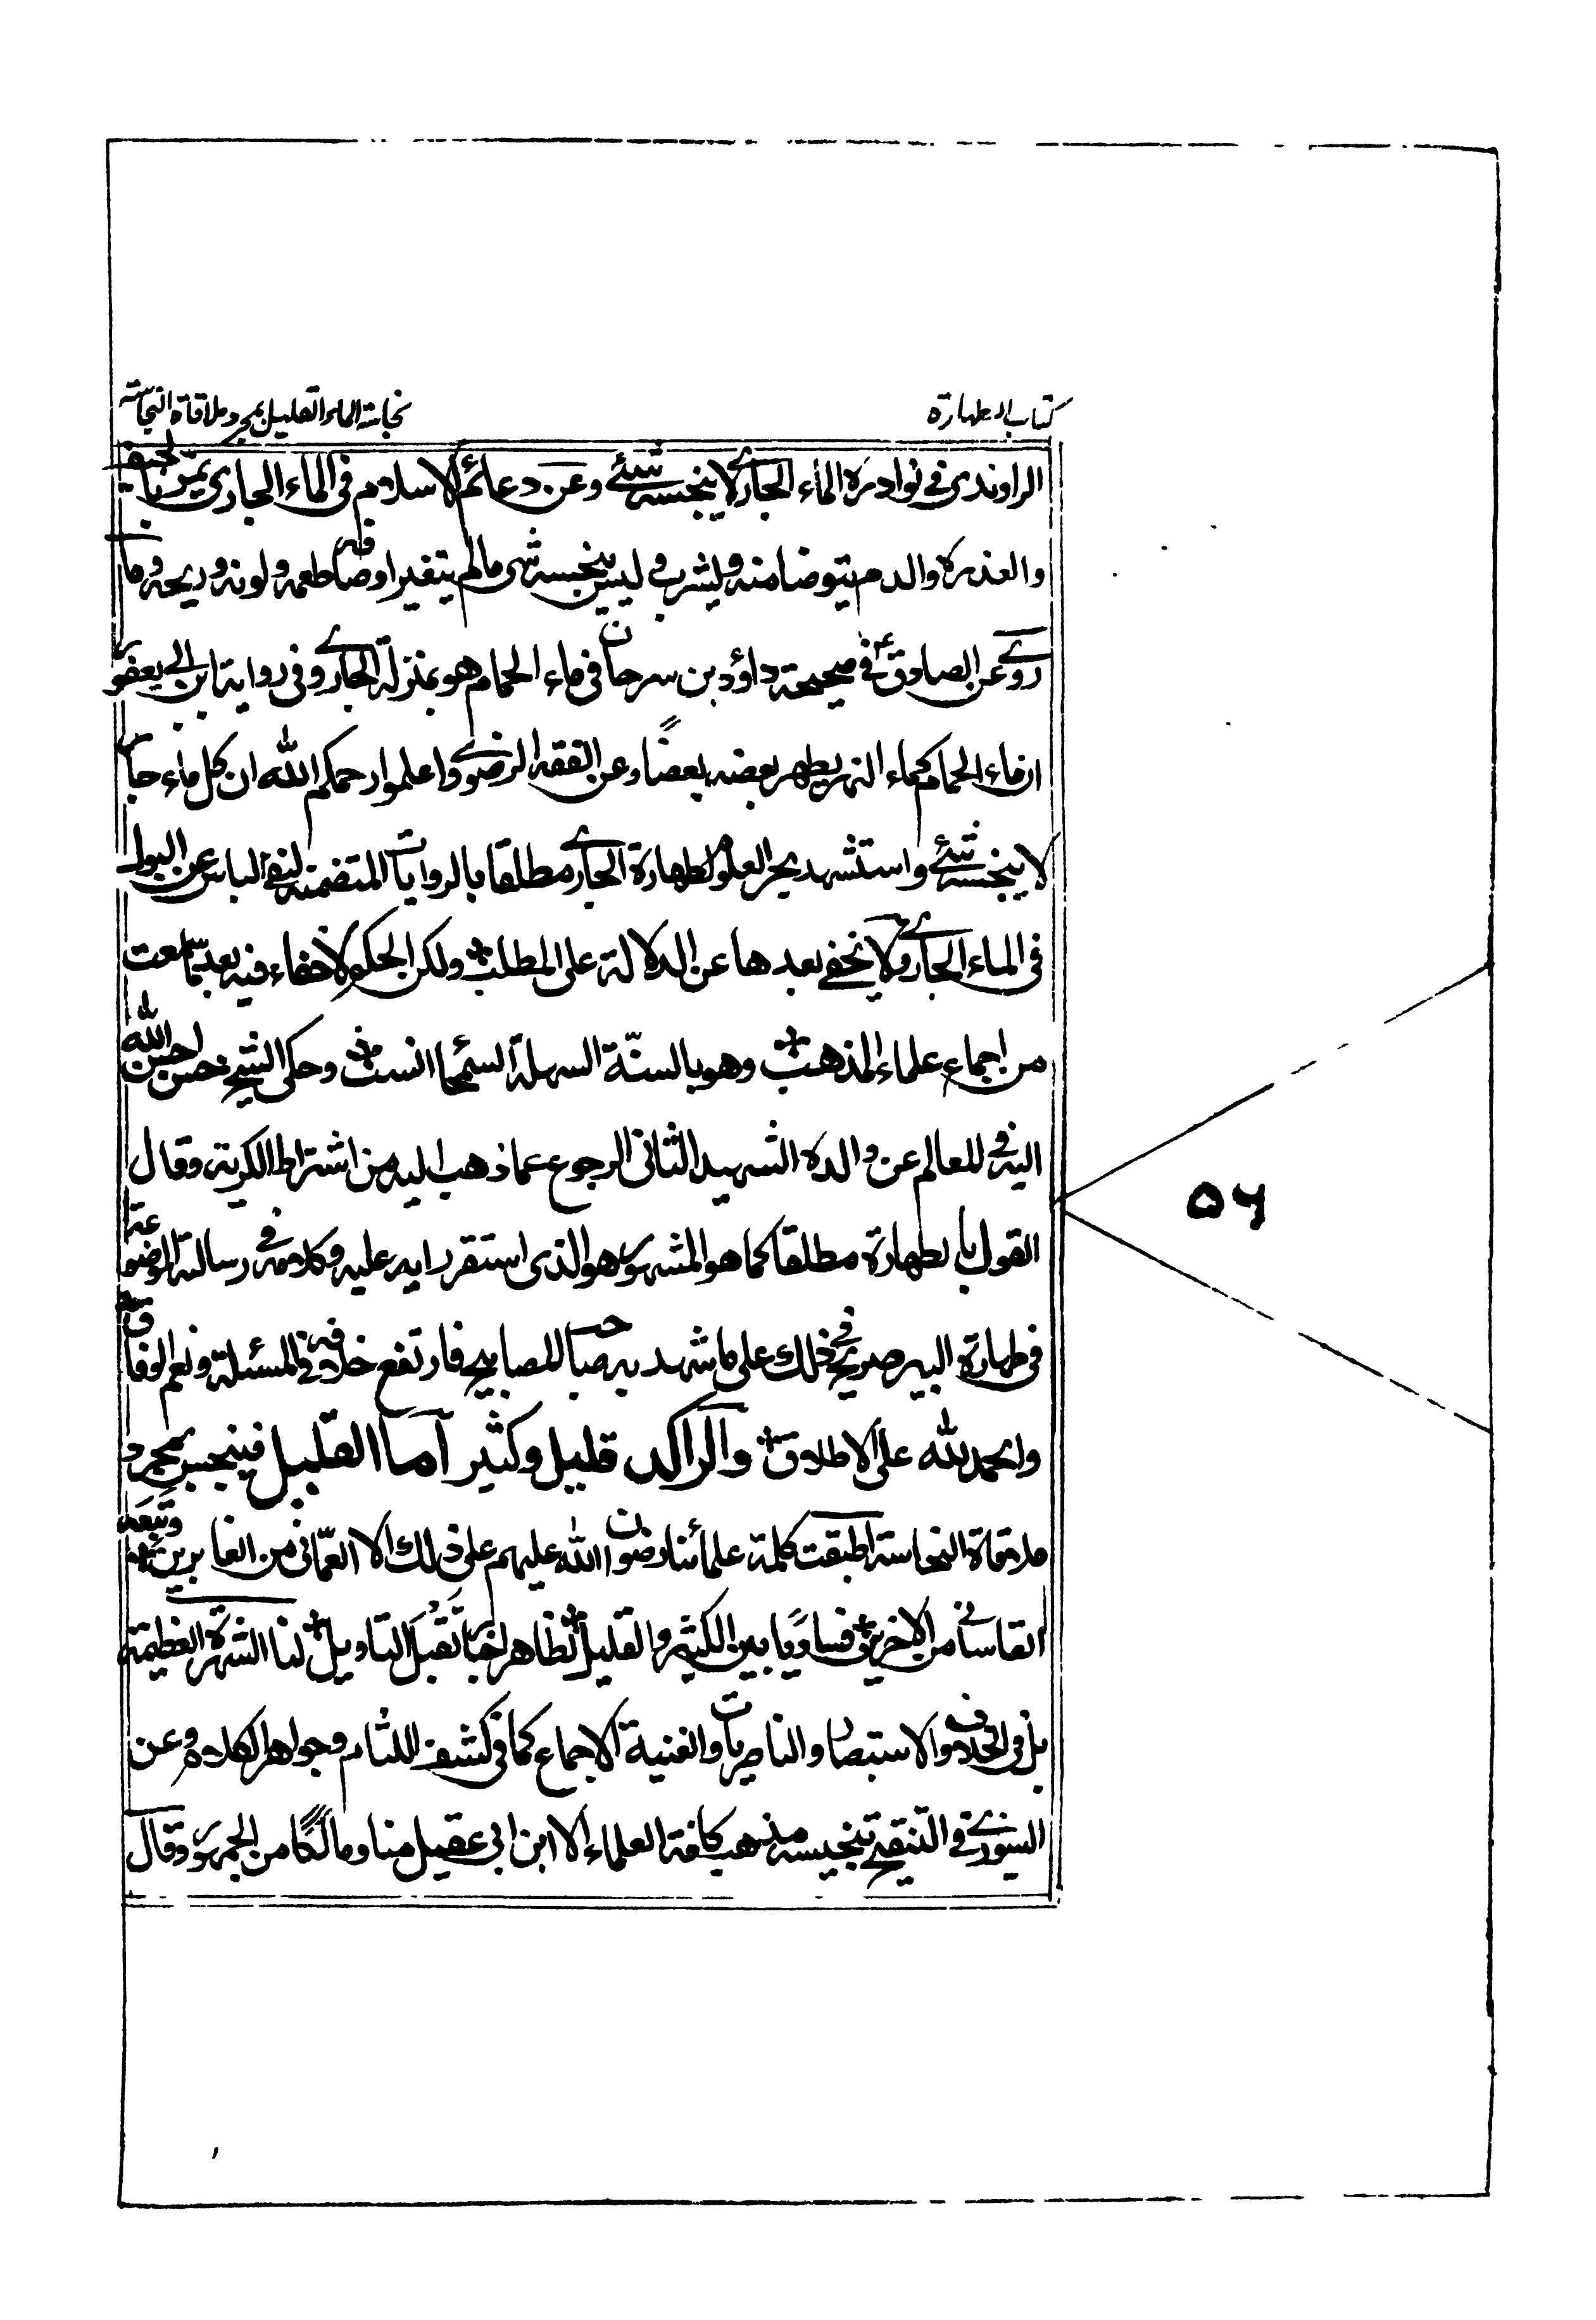 كتاب الطهارة
نجاسة الماء القليل بمجرد ملاقاة النجاسة
الراوندي في نوادره الماء الجاري لا ينجسه شئ وعن دعائم الاسلام في الماء الجاري يمر بالجيف
والعذرة والدم يتوضا منه ويشرب وليس ينجسه شئ مالم يتغير اوصافه طعمه ولونه وريحه وما
روي عن الصادق ع في صحيحة داؤد بن سرحان في ماء الحمام هو بمنزلة الجاري وفي رواية ابن ابي يعفور
ان ماء الحمام كماء النهر يطهر بعضه بعضًا وعن الفقه الرضوي واعلموا رحمكم الله ان كل ماء جار
لا ينجسه شئ واستشهد بحر العلوم لطهارة الجاري مطلقا بالروايات المتضمنة لنفي الباس عن البول
في الماء الجاري ولا يخفى بعدها عن الدلالة على المطلب ولكن الحكم لا خفاء فيه بعد ما سمعت
من اجماع علماء المذهب وهو بالسنّة السهلة السمحا انسب وحكى الشيخ حسن احسن الله
اليه في المعالم عن والده الشهيد الثاني الرجوع عما ذهب اليه من اشتراط الكرية وقال
القول بالطهارة مطلقا كما هو المشهور هو الذي استقر رايه عليه وكلامه في رسالته الموضوعة
في طهارة البير صريح في ذلك على ما شهد به صاحب المصابيح فارتفع خلافه في المسئلة ونعم الوفاق
والحمد لله على الاطلاق والراكد قليل وكثير اما القليل فينجس بمجرد
ملاقاة النجاسة اطبقت كلمة علمائنا رضوان الله عليهم على ذلك الا العمّاني من الغابرين وتبعه
القاساني من الاخرين فساويا بين الكثير والقليل لظاهر اخبار تقبل التاويل لنا الشهرة العظيمة
بل في الخلاف والاستبصار والناصريات والغنية الاجماع كما في كشف اللثام وجواهر الكلام وعن
السيوري في التنقيح تنجيسه مذهب كافة العلماء الا ابن ابي عقيل منا ومالكًا من الجمهور وقال
٥٦